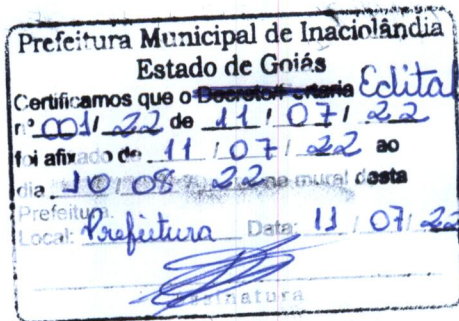 Prefeitura Municipal de Inaciolândia
Estado de Goiás
Certificamos que o Decreto/Portaria Edital
nº 001/22 de 11/07/22
foi afixado de 11/07/22 ao
dia 10/08/22 no mural desta
Prefeitura.
Local: Prefeitura Data: 11/07/22
Assinatura